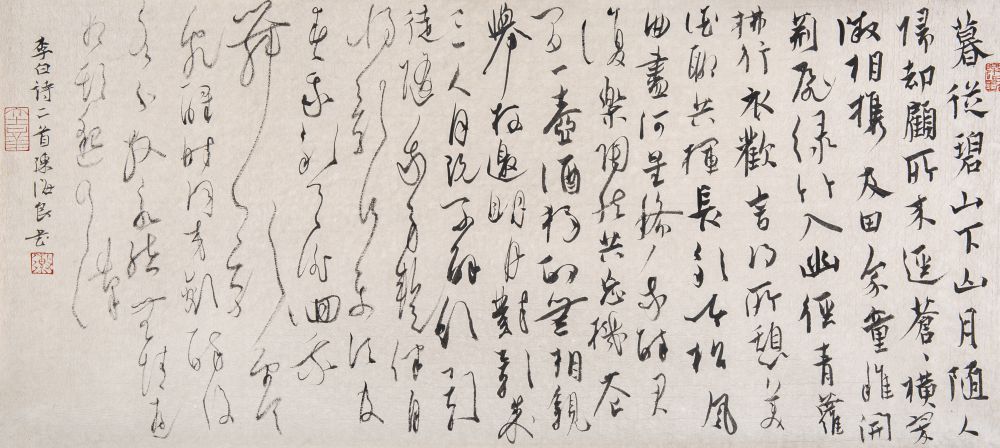 暮從碧山下山月隨人
歸却顧所来逕蒼〻橫翠
微相攜及田家童稚開
荆扉绿竹入幽徑青蘿
拂行衣歡言得所憩美
酒聊共揮長歌吟松風
曲盡河星稀我醉君
復樂陶然共忘機花
间一壺酒獨酌無相親
舉杯邀明月對影成
三人月既不解飲影
徒隨我身暫伴月
將影行樂須及
春我歌月徘徊我
舞影零
亂醒時同交歡醉後
各分散永結無情遊
相期邈雲漢
李白诗二首陳海良书